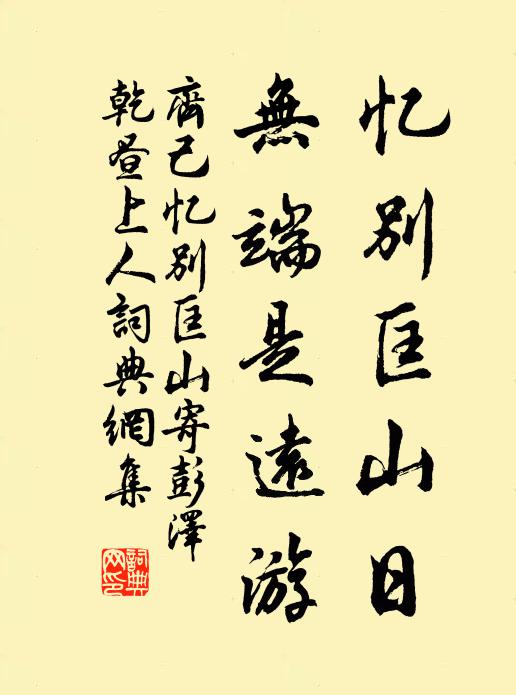 忆别匡山日
無端是遠游
齊己忆别匡山寄彭澤
乾昼上人詞典網集
詞典网印